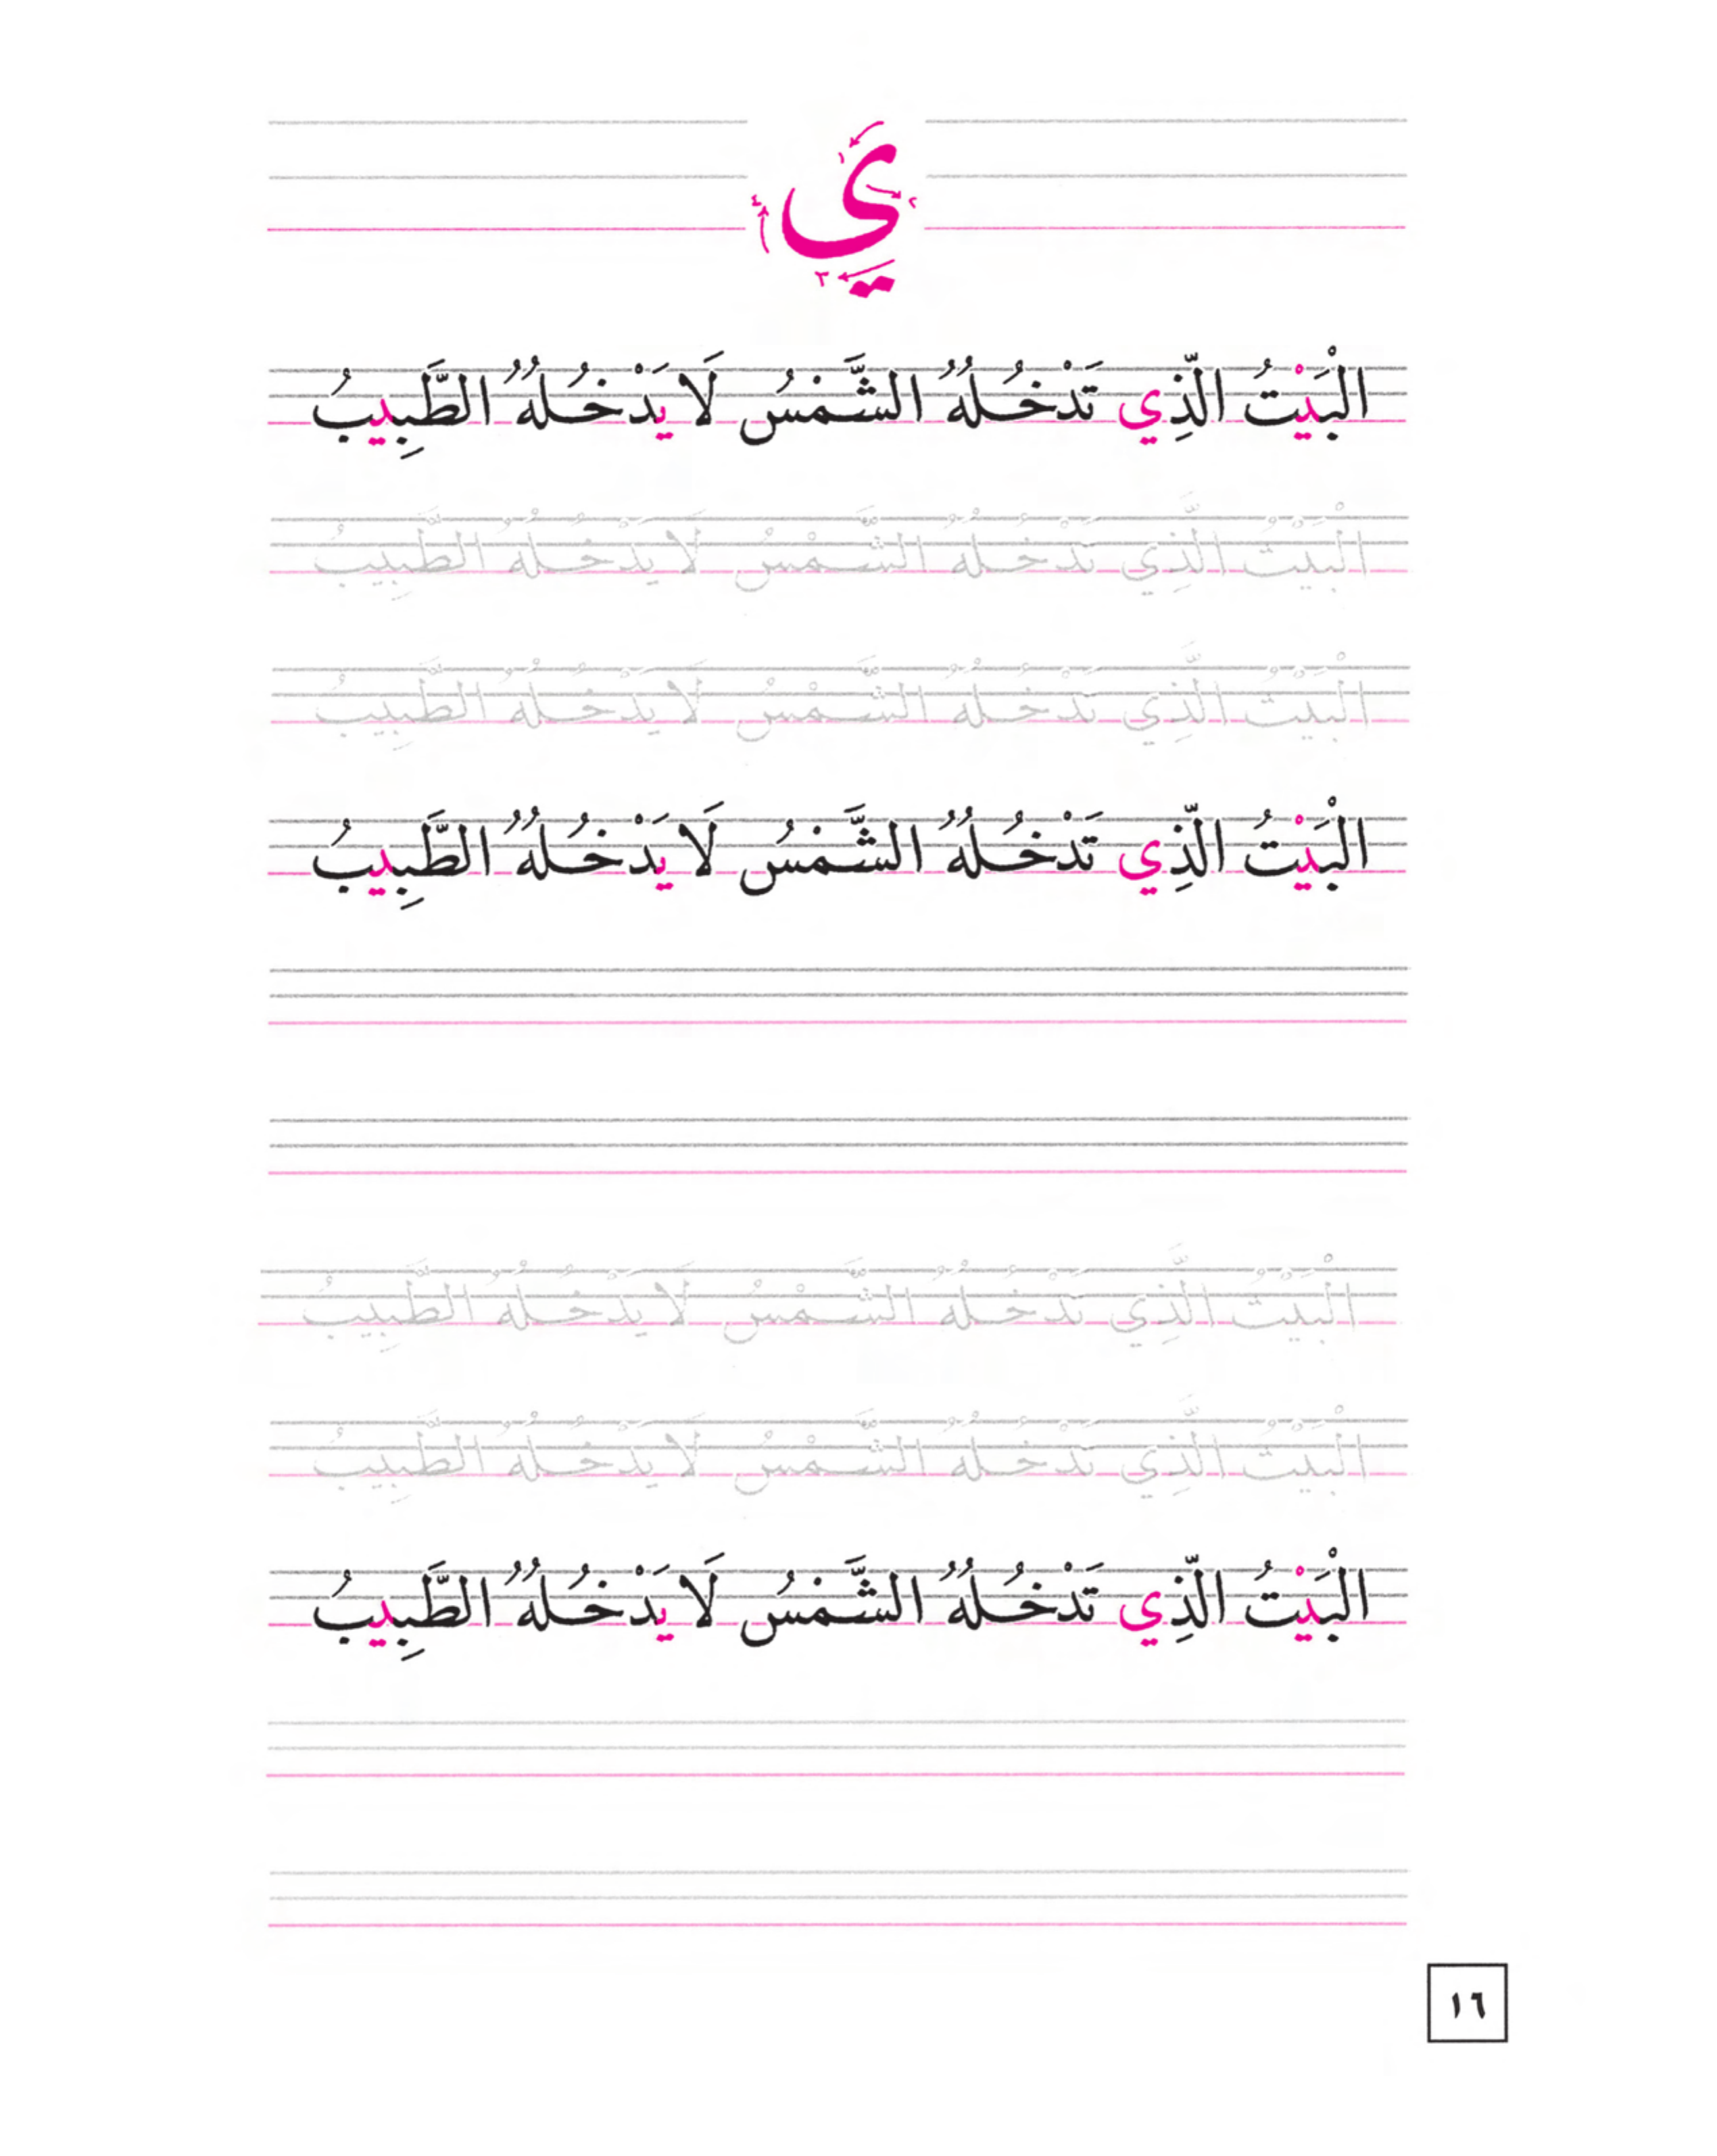 ي
١ ٢ ٣ ٤
الْبَيْتُ الَّذِي تَدْخُلُهُ الشَّمْسُ لَا يَدْخُلُهُ الطَّبِيبُ
الْبَيْتُ الَّذِي تَدْخُلُهُ الشَّمْسُ لَا يَدْخُلُهُ الطَّبِيبُ
الْبَيْتُ الَّذِي تَدْخُلُهُ الشَّمْسُ لَا يَدْخُلُهُ الطَّبِيبُ
الْبَيْتُ الَّذِي تَدْخُلُهُ الشَّمْسُ لَا يَدْخُلُهُ الطَّبِيبُ
الْبَيْتُ الَّذِي تَدْخُلُهُ الشَّمْسُ لَا يَدْخُلُهُ الطَّبِيبُ
الْبَيْتُ الَّذِي تَدْخُلُهُ الشَّمْسُ لَا يَدْخُلُهُ الطَّبِيبُ
الْبَيْتُ الَّذِي تَدْخُلُهُ الشَّمْسُ لَا يَدْخُلُهُ الطَّبِيبُ
١٦